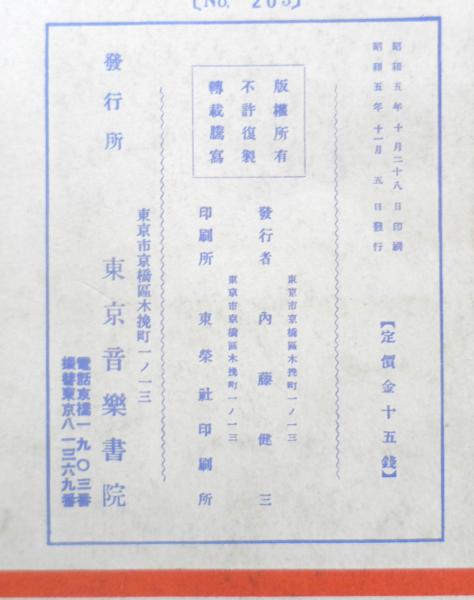 【No. 203】
昭和五年十月二十八日印刷
昭和五年十一月五日發行
【定價金十五錢】
版權所有
不許復製
轉載謄寫
東京市京橋區木挽町一ノ一三
發行者 內藤健三
東京市京橋區木挽町一ノ一三
印刷所 東榮社印刷所
東京市京橋區木挽町一ノ一三
發行所 東京音樂書院
電話京橋一九〇三番
振替東京八一三六九番